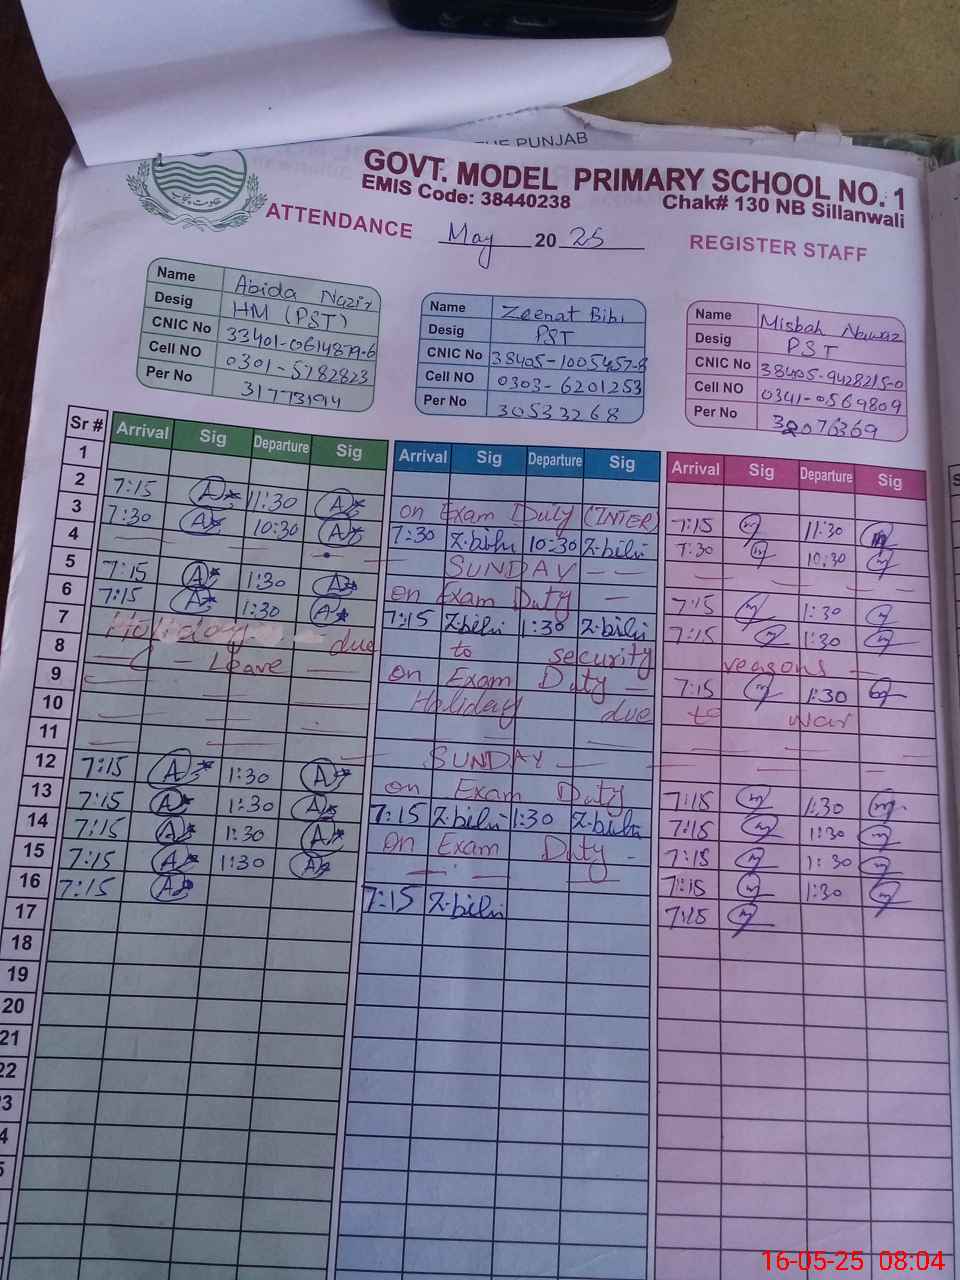 THE PUNJAB
GOVT. MODEL PRIMARY SCHOOL NO. 1
EMIS Code: 38440238 Chak# 130 NB Sillanwali
ATTENDANCE May 2025 REGISTER STAFF
Name Abida Nazir
Desig HM (PST)
CNIC No 33401-0614879-6
Cell NO 0301-5782823
Per No 31773194
Name Zeenat Bibi
Desig PST
CNIC No 38405-1005457-8
Cell NO 0303-6201253
Per No 30533268
Name Misbah Nawaz
Desig PST
CNIC No 38405-9428215-0
Cell NO 0341-0569809
Per No 32076369
Sr # Arrival Sig Departure Sig Arrival Sig Departure Sig Arrival Sig Departure Sig
1
2 7:15 A 11:30 A on Exam Duty (INTER) 7:15 m 11:30 m
3 7:30 A 10:30 A 7:30 Z.bibi 10:30 Z.bibi 7:30 m 10:30 m
4 SUNDAY
5 7:15 A 1:30 A on Exam Duty 7:15 m 1:30 m
6 7:15 A 1:30 A 7:15 Z.bibi 1:30 Z.bibi 7:15 m 1:30 m
7 Holiday due to security reasons
8 Leave on Exam Duty 7:15 m 1:30 m
9 Holiday due to war
10
11 SUNDAY
12 7:15 A 1:30 A on Exam Duty 7:15 m 1:30 m
13 7:15 A 1:30 A 7:15 Z.bibi 1:30 Z.bibi 7:15 m 1:30 m
14 7:15 A 1:30 A on Exam Duty 7:15 m 1:30 m
15 7:15 A 1:30 A 7:15 m 1:30 m
16 7:15 A 7:15 Z.bibi 7:15 m
17
18
19
20
21
22
16-05-25 08:04